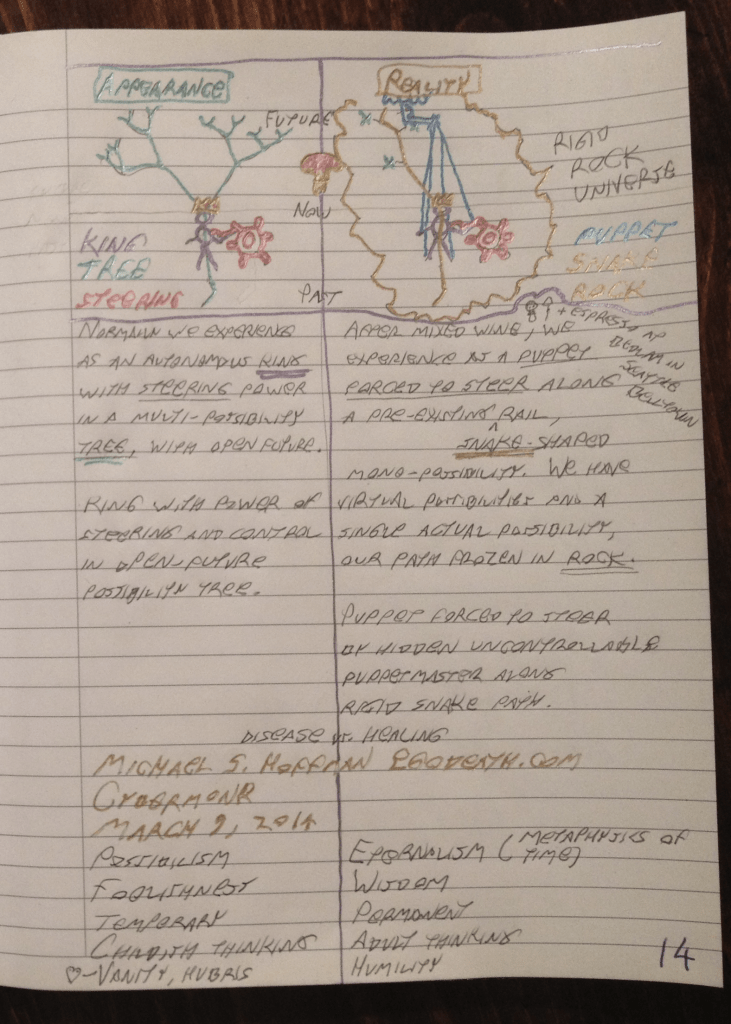 APPEARANCE
REALITY
FUTURE
NOW
PAST
KING
TREE
STEERING
RIGID
ROCK
UNIVERSE
PUPPET
SNAKE
ROCK
+ ESPRESSO AT
BEDLAM IN
SEATTLE
BELLTOWN
NORMALLY WE EXPERIENCE
AS AN AUTONOMOUS KING
WITH STEERING POWER
IN A MULTI-POSSIBILITY
TREE, WITH OPEN FUTURE.
KING WITH POWER OF
STEERING AND CONTROL
IN OPEN-FUTURE
POSSIBILITY TREE.
AFTER MIXED WINE, WE
EXPERIENCE AS A PUPPET
FORCED TO STEER ALONG
A PRE-EXISTING RAIL,
SNAKE-SHAPED
MONO-POSSIBILITY. WE HAVE
VIRTUAL POSSIBILITIES AND A
SINGLE ACTUAL POSSIBILITY,
OUR PATH FROZEN IN ROCK.
PUPPET FORCED TO STEER
BY HIDDEN UNCONTROLLABLE
PUPPETMASTER ALONG
RIGID SNAKE PATH.
DISEASE vs. HEALING
MICHAEL S. HOFFMAN EGODEATH.COM
CYBERMONK
MARCH 9, 2014
POSSIBILISM
FOOLISHNESS
TEMPORARY
CHILDISH THINKING
♡-VANITY, HUBRIS
ETERNALISM (METAPHYSICS OF
TIME)
WISDOM
PERMANENT
ADULT THINKING
HUMILITY
14